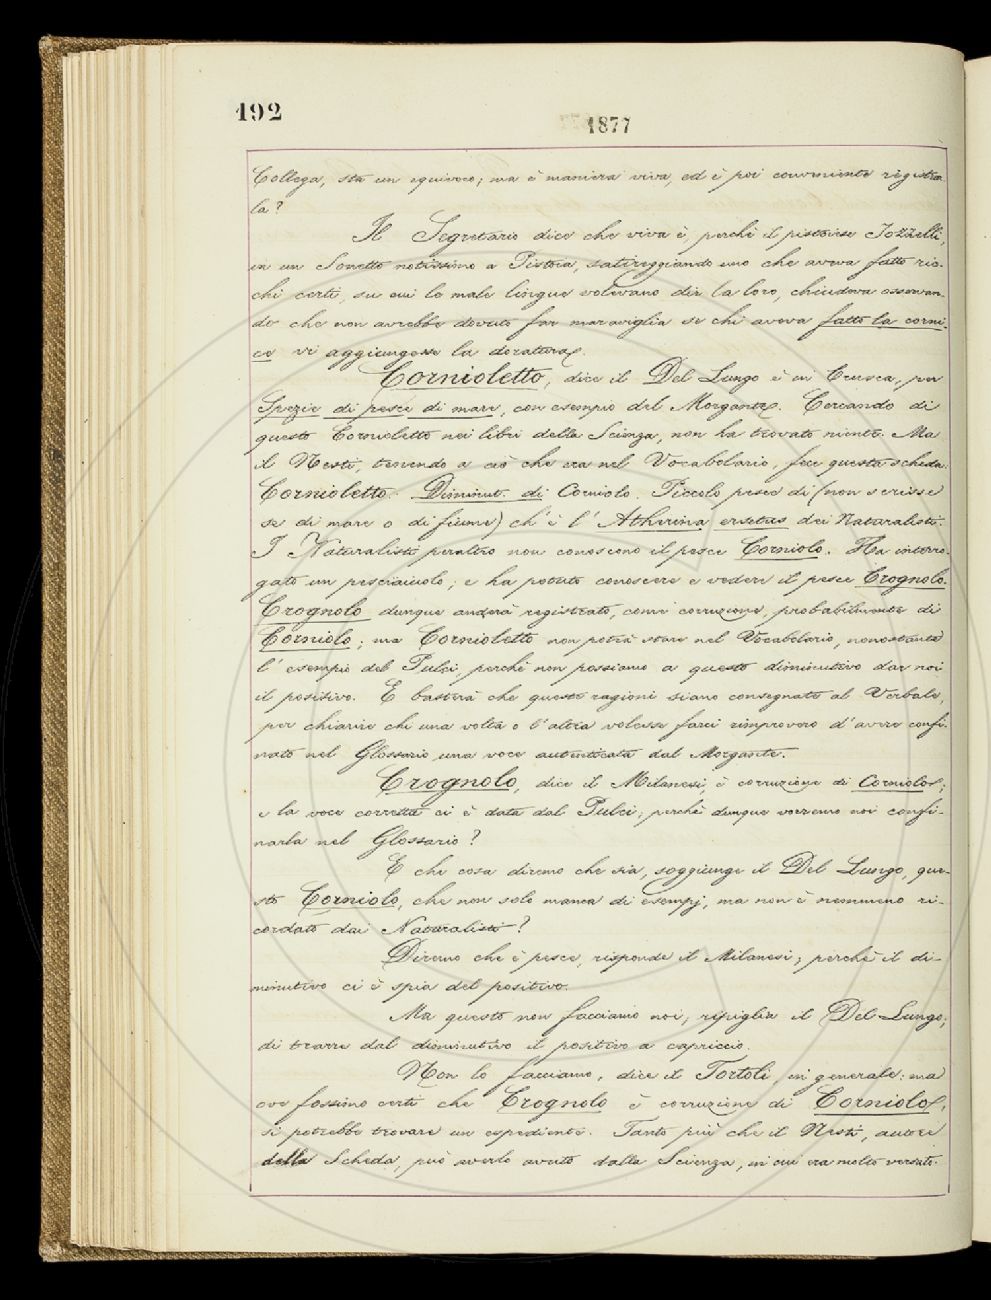 192
1877
Collega, sta un equivoco; ma è maniera viva, ed è poi conveniente registrar-
la?
Il Segretario dice che viva è, perchè il pistoiese Jozzelli,
in un Sonetto notissimo a Pistoia, satireggiando uno che aveva fatto ric-
chi certi, su cui le male lingue volevano dir la loro, chiudeva osservan-
do che non avrebbe dovuto far maraviglia se chi aveva fatto la corni-
ce vi aggiungesse la doratura.
Cornioletto, dice il Del Lungo è in Crusca, per
Spezie di pesce di mare, con esempio del Morgante. Cercando di
questo Cornioletto nei libri della Scienza, non ha trovato niente. Ma
il Nesti, tenendo a ciò che era nel Vocabolario, fece questa scheda:
Cornioletto. Diminut. di Corniolo. Piccolo pesce di (non scrisse
se di mare o di fiume) ch'è l'Atherina ersetus dei Naturalisti.
I Naturalisti peraltro non conoscono il pesce Corniolo. Ha interro-
gato un pesciaiuolo; e ha potuto conoscere e vedere il pesce Crognolo.
Crognolo dunque anderà registrato, come corruzione, probabilmente di
Corniolo; ma Cornioletto non potrà stare nel Vocabolario, nonostante
l'esempio del Pulci, perchè non possiamo a questo diminutivo dar noi
il positivo. E basterà che queste ragioni siano consegnate al Verbale,
per chiarire chi una volta o l'altra volesse farci rimprovero d'avere confi-
nato nel Glossario una voce autenticata dal Morgante.
Crognolo, dice il Milanesi, è corruzione di Corniolo;
e la voce corretta ci è data dal Pulci; perchè dunque vorremo noi confi-
narla nel Glossario?
E che cosa diremo che sia, soggiunge il Del Lungo, que-
sto Corniolo, che non solo manca di esempj, ma non è nemmeno ri-
cordato dai Naturalisti?
Diremo che è pesce, risponde il Milanesi; perchè il di-
minutivo ci è spia del positivo.
Ma questo non facciamo noi, ripiglia il Del Lungo;
di trarre dal diminutivo il positivo a capriccio.
Non lo facciamo, dice il Tortoli, in generale: ma
ove fossimo certi che Crognolo è corruzione di Corniolo,
si potrebbe trovare un espediente. Tanto più che il Nesti, autore
della Scheda, può averlo avuto dalla Scienza, in cui era molto versato.